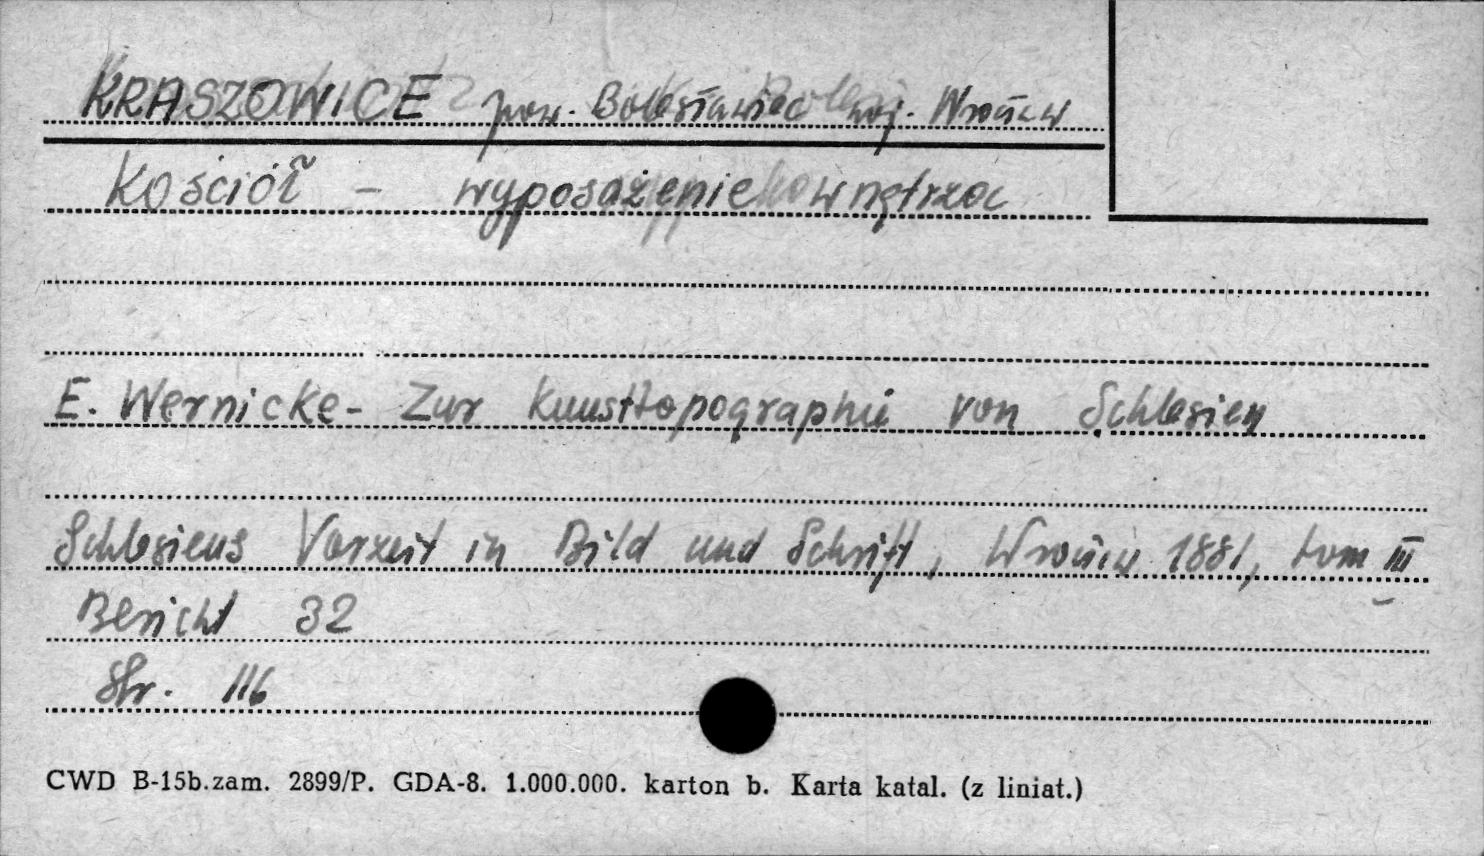 KRASZOWICE pow. Bolesławiec woj. Wrocław
Kościół - wyposażenie wnętrza
E. Wernicke - Zur Kunsttopographie von Schlesien
Schlesiens Vorzeit in Bild und Schrift, Wrocław 1881, tom III
Bericht 32
Str. 116
CWD B-15b.zam. 2899/P. GDA-8. 1.000.000. karton b. Karta katal. (z liniat.)